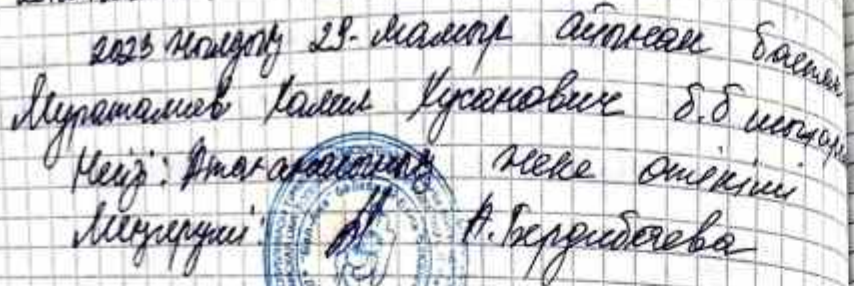 2023 жылдың 29-мамыр айынан бастап
Мураталиев Халил Хусанович б.б шығару
Негіз: Атананасының жеке өтініші
Меңгеруші: А. Бердибаева